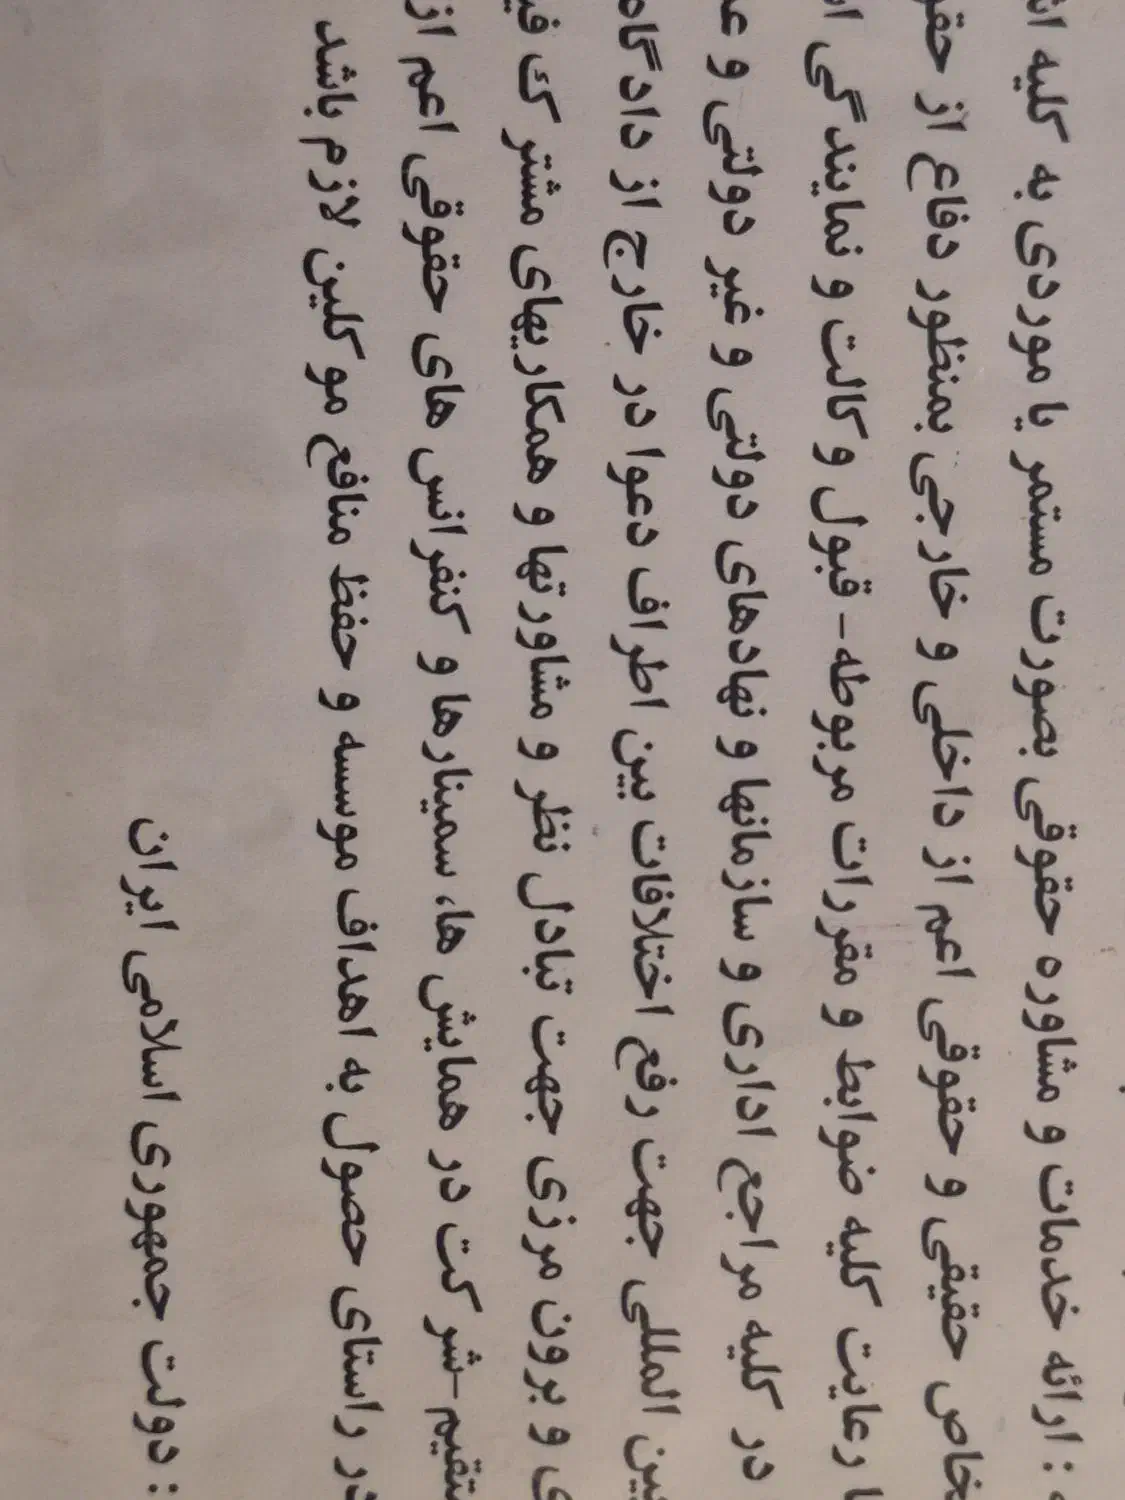 : ارائه خدمات و مشاوره حقوقی بصورت مستمر یا موردی به کلیه
حقیقی و حقوقی اعم از داخلی و خارجی بمنظور دفاع از
رعایت کلیه ضوابط و مقررات مربوطه- قبول وکالت و نمایندگی
در کلیه مراجع اداری و سازمانها و نهادهای دولتی و غیر دولتی و
المللی جهت رفع اختلافات بین اطراف دعوا در خارج از دادگاه
و برون مرزی جهت تبادل نظر و مشاورتها و همکاریهای مشترک
-شرکت در همایش ها، سمینارها و کنفرانس های حقوقی اعم از
در راستای حصول به اهداف موسسه و حفظ منافع موکلین لازم باشد
: دولت جمهوری اسلامی ایران